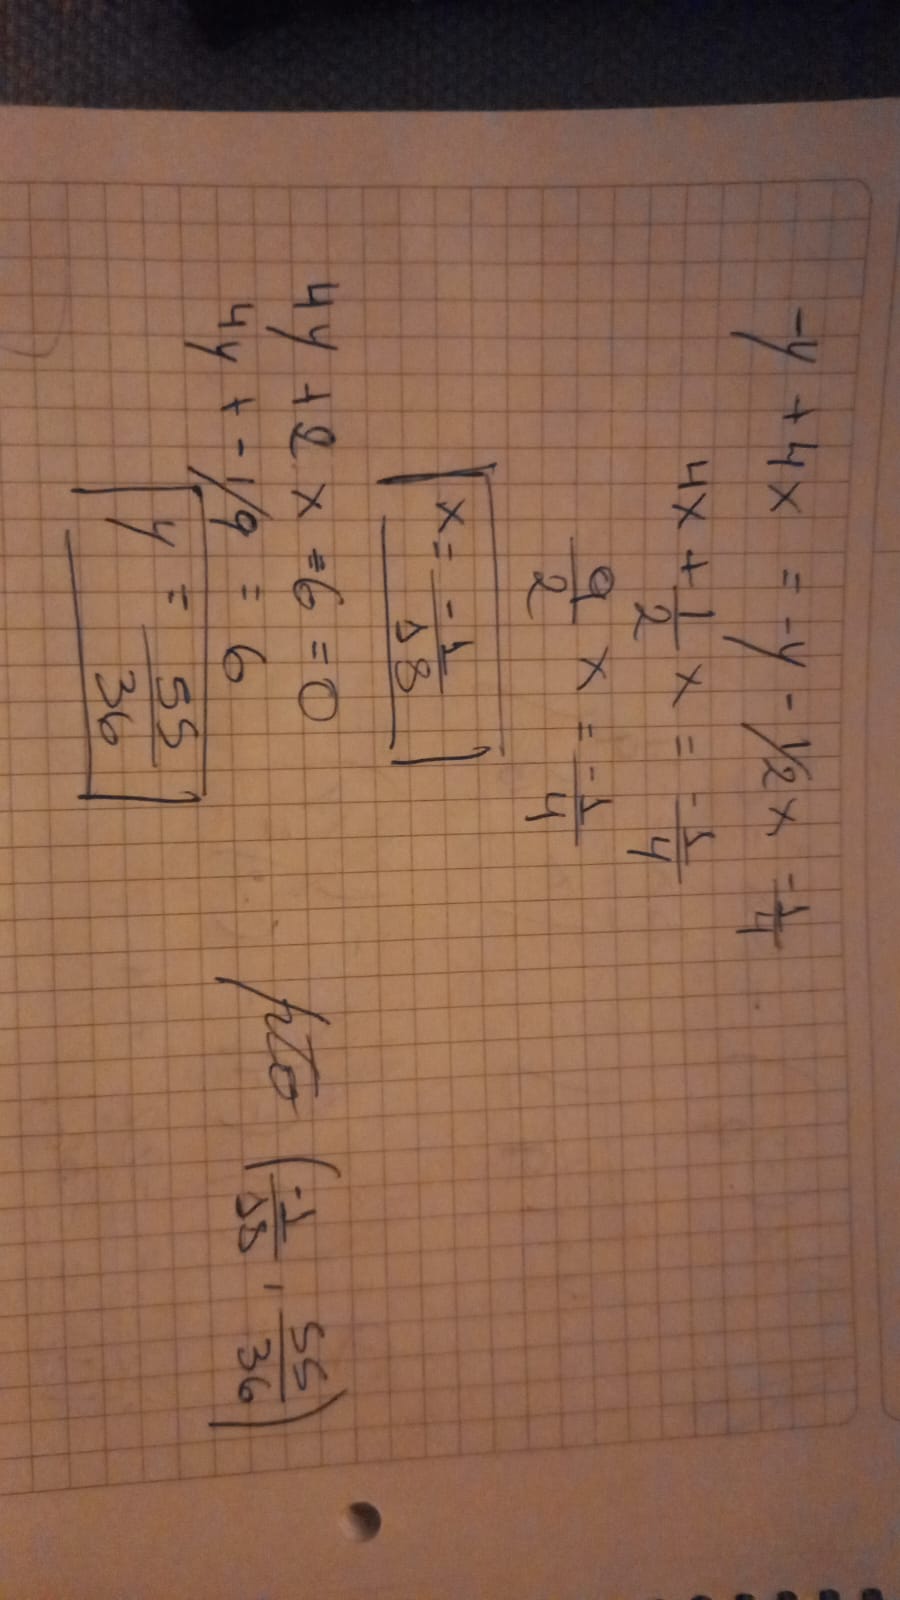 -y + 4x = -y - 1/2 x -1/4
4x + 1/2 x = -1/4
9/2 x = -1/4
x = -1/18
4y + 2x = 6 = 0
4y + -1/9 = 6
y = 55/36
pto (-1/18 , 55/36)